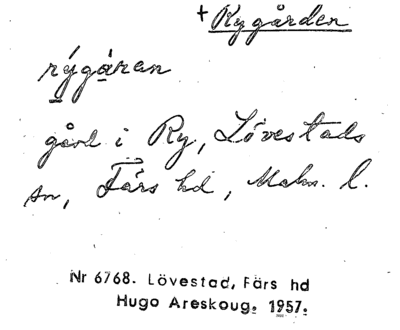 + Rygården
rýgàṟan
gård i Ry, Lövestads
sn, Färs hd, Malm. l.
Nr 6768. Lövestad, Färs hd
Hugo Areskoug. 1957.